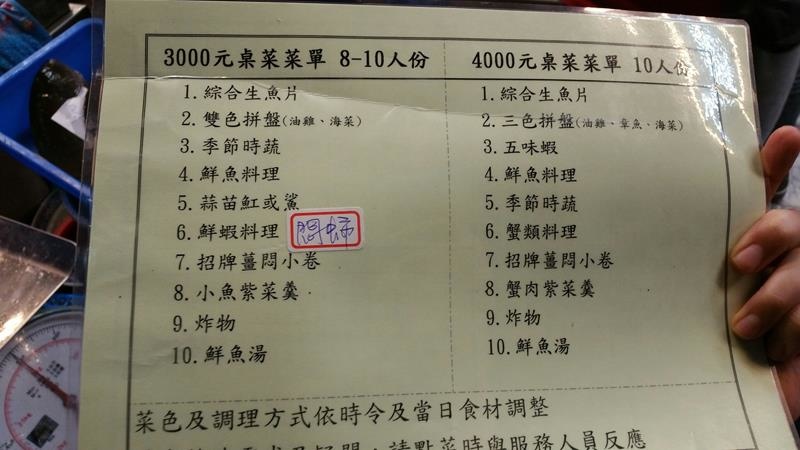 3000元桌菜菜單 8-10人份
1. 綜合生魚片
2. 雙色拼盤(油雞、海菜)
3. 季節時蔬
4. 鮮魚料理
5. 蒜苗魟或鯊
6. 鮮蝦料理
7. 招牌薑悶小卷
8. 小魚紫菜羹
9. 炸物
10. 鮮魚湯
4000元桌菜菜單 10人份
1. 綜合生魚片
2. 三色拼盤(油雞、章魚、海菜)
3. 五味蝦
4. 鮮魚料理
5. 季節時蔬
6. 蟹類料理
7. 招牌薑悶小卷
8. 蟹肉紫菜羹
9. 炸物
10. 鮮魚湯
菜色及調理方式依時令及當日食材調整
請點菜時與服務人員反應